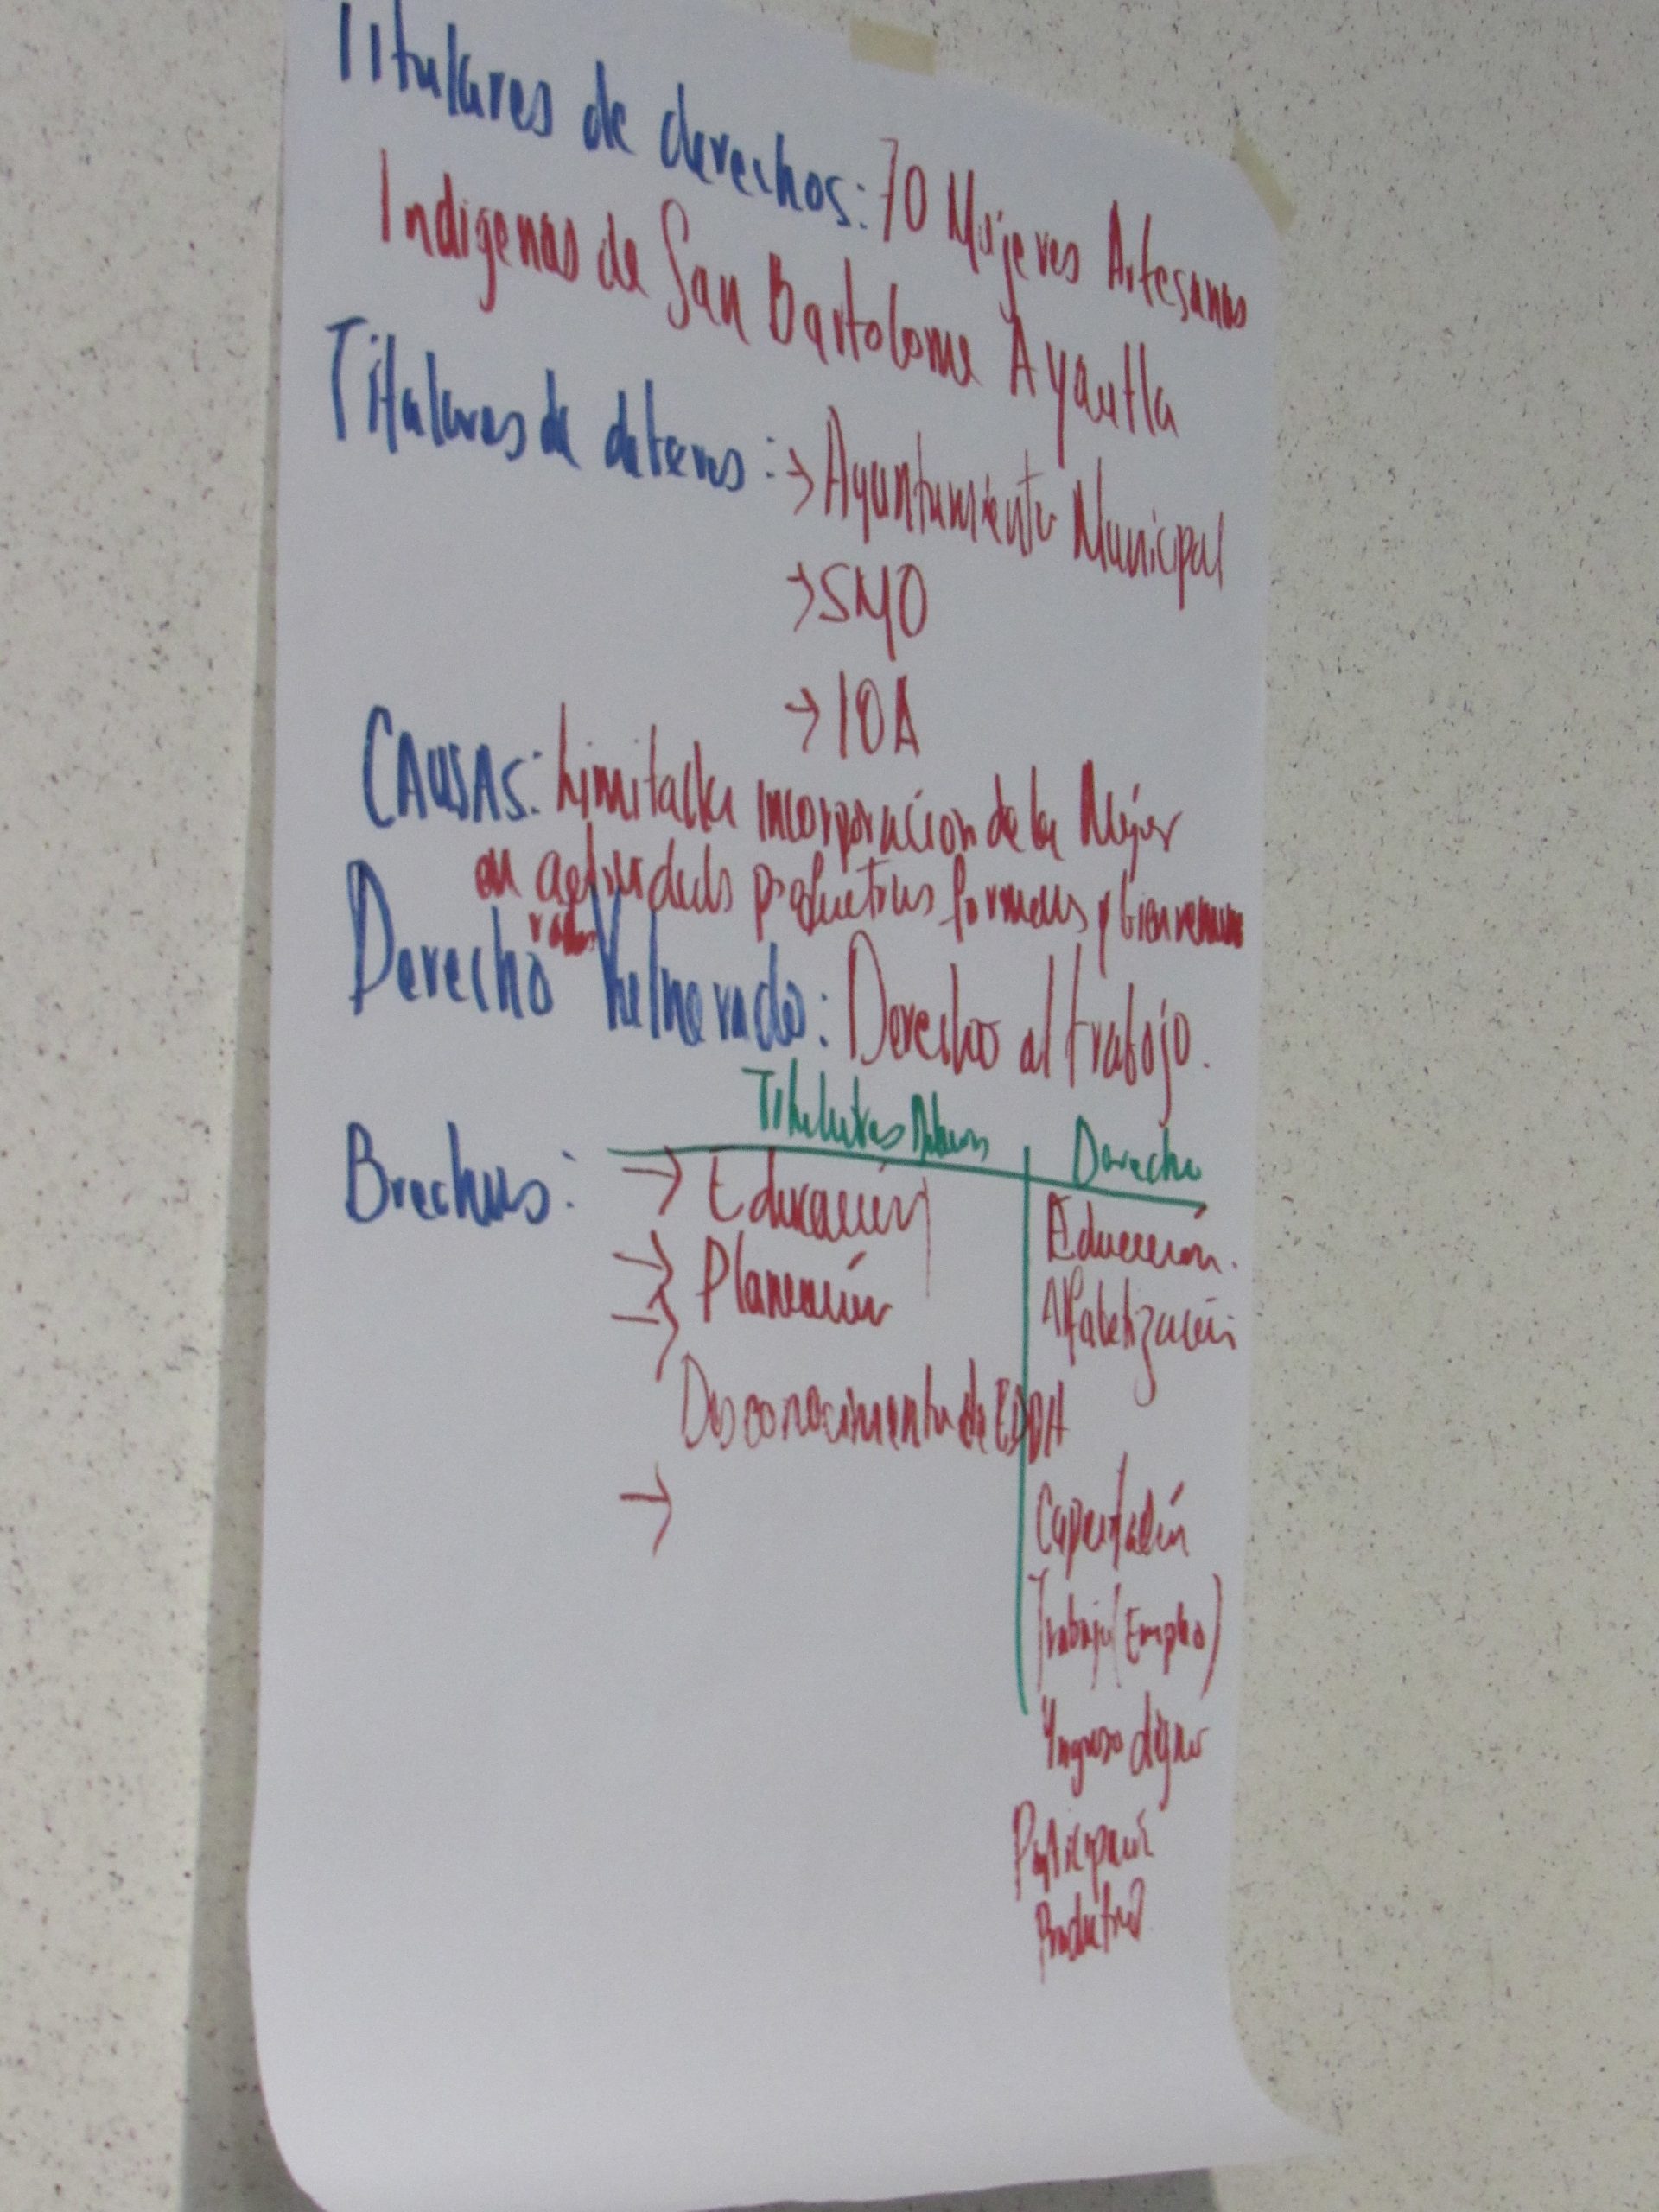 Titulares de derechos: 70 Mujeres Artesanas
Indigenas de San Bartolome Ayautla
Titulares de deberes: → Ayuntamiento Municipal
→ SMO
→ IOA
CAUSAS: Limitada incorporacion de la Mujer
en actividades productivas formales y bien remune
radas
Derecho Vulnerado: Derecho al trabajo.
Titulares Deberes Derecho
Brechas: → Educación Educación.
→ Planeación Alfabetización
→ Desconocimiento de EDDH
→ Capacitación
Trabajo (Empleo)
Yngreso digno
Participación
Productiva